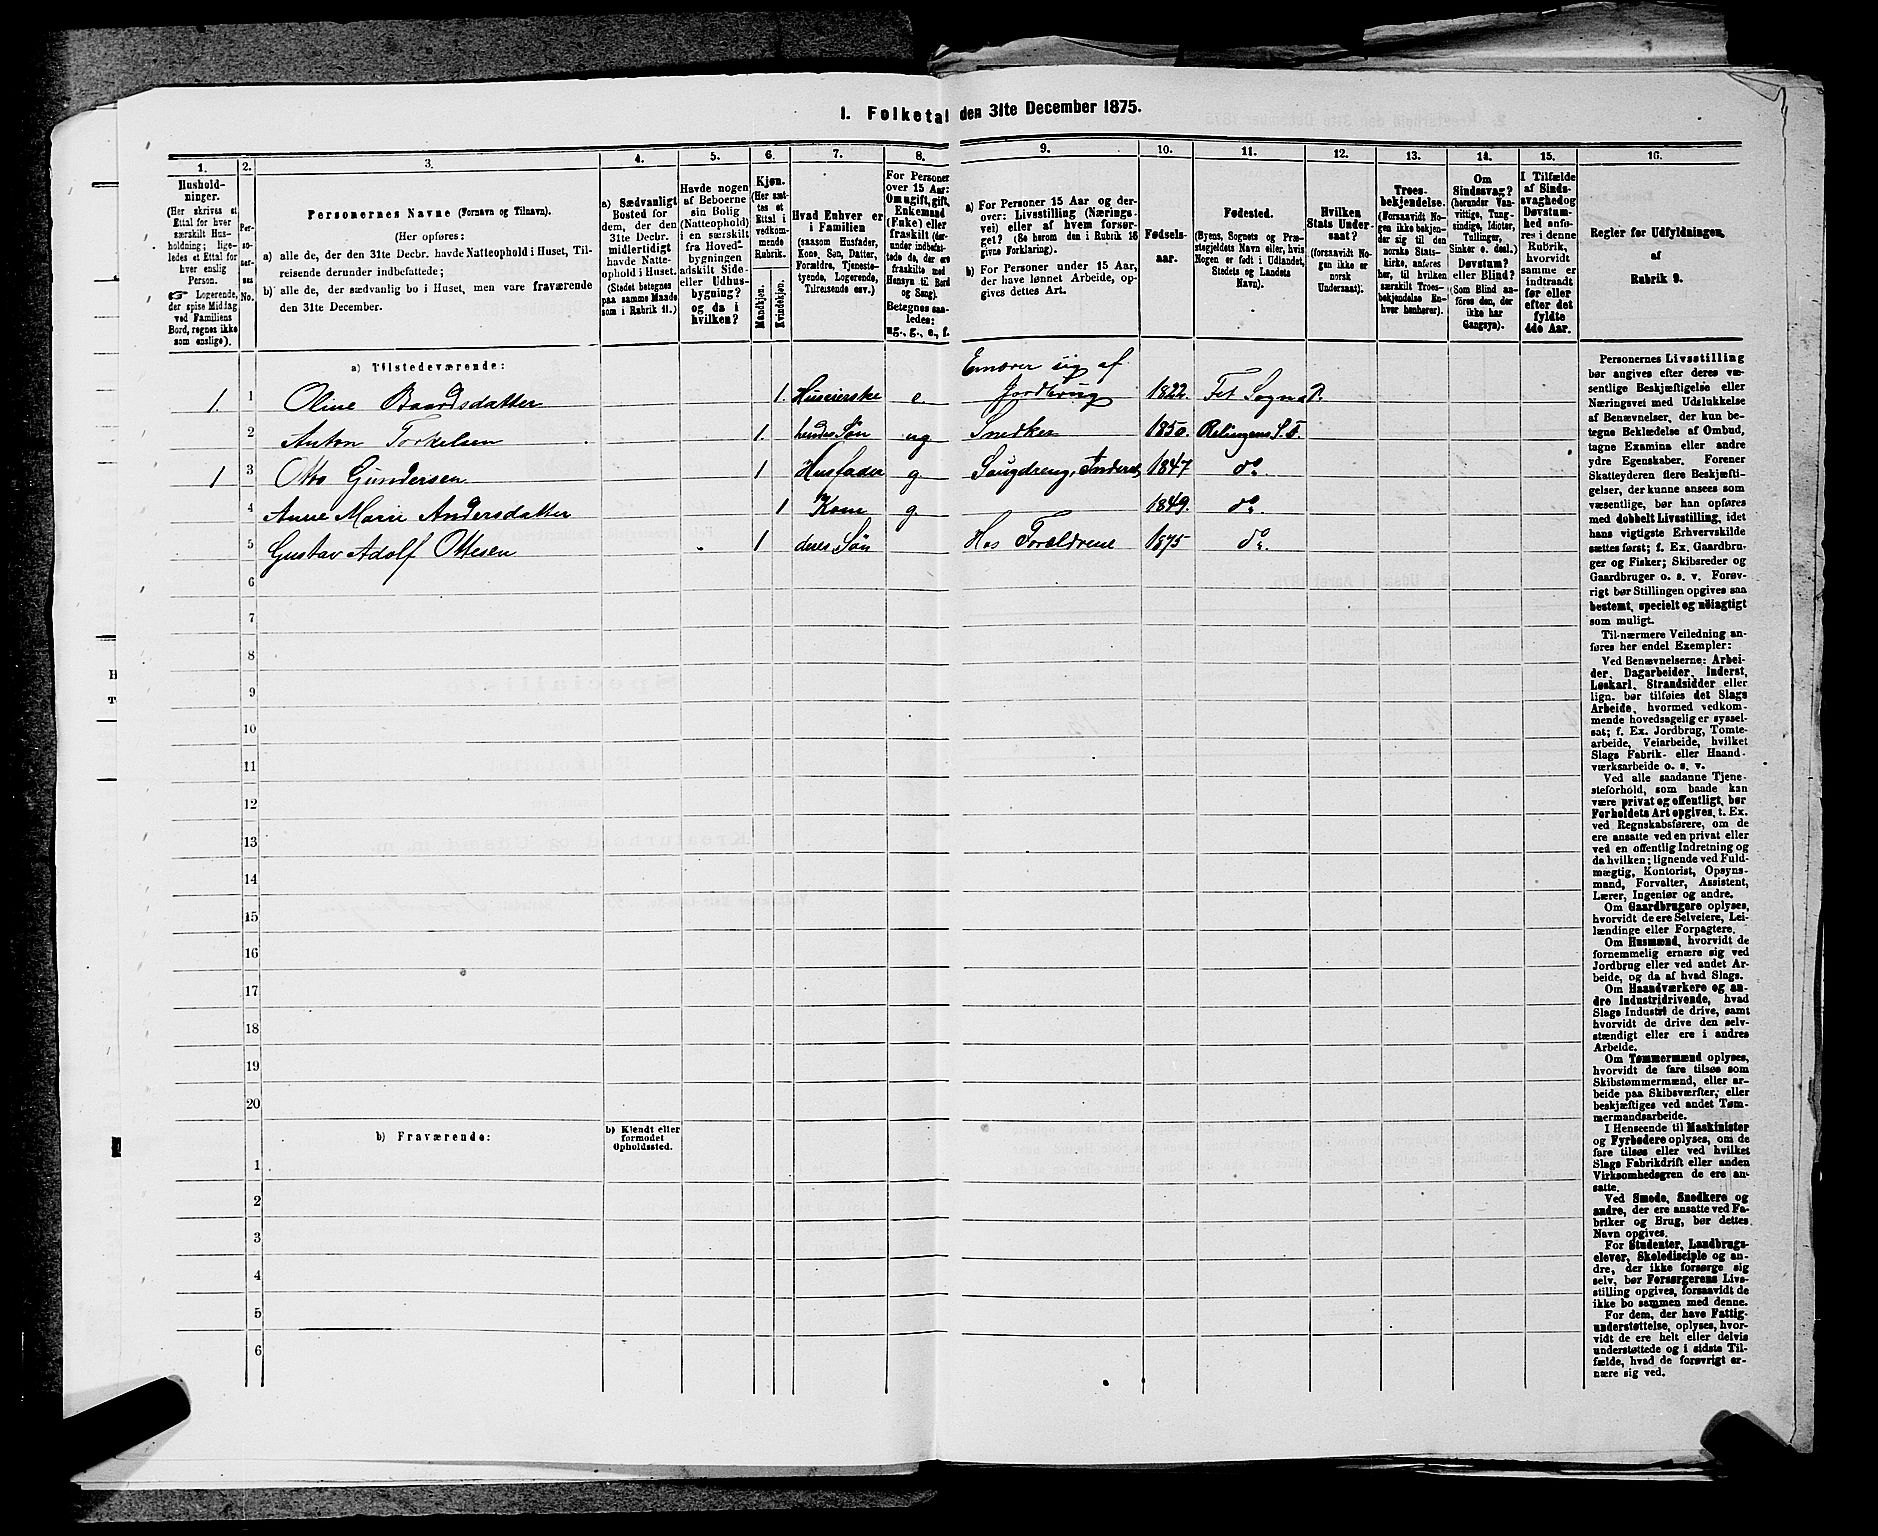 1. Folketal den 31te December 1875.
1. 2. 3. 4. 5. 6. 7. 8. 9. 10. 11. 12. 13. 14. 15. 16.
Hushold-
ninger.
(Her skrives et
Ettal for hver
særskilt Hus-
holdning; lige-
ledes et Ettal for
hver enslig
Person.
☞ Logerende,
der spise Middag
ved Familiens
Bord, regnes ikke
som enslige).
Per-
so-
ner-
nes
No.
Personernes Navne (Fornavn og Tilnavn).
(Her opføres:
a) alle de, der den 31te Decbr. havde Natteophold i Huset, Til-
reisende derunder indbefattede;
b) alle de, der sædvanlig bo i Huset, men vare fraværende
den 31te December.
a) Sædvanligt
Bosted for
dem, der den
31te Decbr.
midlertidigt
havde Natte-
ophold i Huset.
(Stedet betegnes
paa samme Maade
som i Rubrik 11.)
Havde nogen
af Beboerne
sin Bolig
(Natteophold)
i en særskilt
fra Hoved-
bygningen
adskilt Side-
eller Udhus-
bygning?
og da i
hvilken?
Kjøn.
(Her sæt-
tes et
Ettal i
vedkom-
mende
Rubrik.
Mandkjøn.
Kvindekjøn.
Hvad Enhver er
i Familien
(saasom Husfader,
Kone, Søn, Datter,
Forældre, Tjeneste-
tyende, Logerende,
Tilreisende osv.)
For Personer
over 15 Aar:
Om ugift, gift,
Enkemand
(Enke) eller
fraskilt (der-
under indbefat-
tede de, der ere
fraskilte med
Hensyn til Bord
og Seng).
Betegnes saa-
ledes:
ug., g., e., f.
a) For Personer 15 Aar og der-
over: Livsstilling (Nærings-
vei) eller af hvem forsør-
get? (Se herom den i Rubrik 16
givne Forklaring).
b) For Personer under 15 Aar,
der have lønnet Arbeide, op-
gives dettes Art.
Fødsels-
aar.
Fødested.
(Byens, Sognets og Præ-
stegjeldets Navn eller, hvis
Nogen er født i Udlandet,
Stedets og Landets
Navn).
Hvilken
Stats Under-
saat?
(forsaavidt No-
gen ikke er
norsk
Undersaat).
Troes-
bekjendelse.
(Forsaavidt No-
gen ikke bekjen-
der sig til den
norske Stats-
kirke, anføres
her, til hvilken
særskilt Troes-
bekjendelse En-
hver henhører).
Om
Sindssvag?
(herunder Van-
vittige, Tung-
sindige, Idioter,
Tullinger,
Sinker o. desl.)
Døvstum?
eller Blind?
(Som Blind an-
føres den, der
ikke har
Gangsyn).
I Tilfælde
af Sinds-
svaghed og
Døvstum-
hed anfø-
res i denne
Rubrik,
hvorvidt
samme er
indtraadt
før eller
efter det
fyldte
4de Aar.
Regler for Udfyldningen
af
Rubrik 9.
a) Tilstedeværende:
Ernærer sig af
1. 1 Oline Baardsdatter 1. Huseierske e. Jordbrug 1822. Fet Sogn
2 Anton Torkelsen 1. hendes Søn ug Snedker 1850.
1 3 Otto Gundersen 1 Husfader g 1847 do.
4 Anne Marie Andersdatter 1 Kone g. 1849. do.
5 Gustav Adolf Ottesen 1 deres Søn Hos Forældrene 1875 do.
6
7
8
9
10
11
12
13
14
15
16
17
18
19
20
b) Fraværende:
b) Kjendt eller
formodet
Opholdssted.
1
2
3
4
5
6
Personernes Livsstilling
bør angives efter deres væ-
sentlige Beskjæftigelse eller
Næringsvei med Udelukkelse
af Benævnelser, der kun be-
tegne Beklædelse af Ombud,
tagne Examina eller andre
ydre Egenskaber. Forener
Skatteyderen flere Beskjæfti-
gelser, der kunne ansees som
væsentlige, bør han opføres
med dobbelt Livsstilling, idet
hans vigtigste Erhvervskilde
sættes først; f. Ex. Gaardbru-
ger og Fisker; Skibsreder og
Gaardbruger o. s. v. Forøv-
rigt bør Stillingen opgives saa
bestemt, specielt og nöiagtigt
som muligt.
Til nærmere Veiledning an-
føres her endel Exempler:
Ved Benævnelserne: Arbei-
der, Dagarbeider, Inderst,
Løskarl, Strandsidder eller
lign. bør tilføies det Slags
Arbeide, hvormed vedkom-
mende hovedsagelig er syssel-
sat; f. Ex. Jordbrug, Tomte-
arbeide, Veiarbeide, hvilket
Slags Fabrik- eller Haand-
værksarbeide o. s. v.
Ved alle saadanne Tjene-
steforhold, som baade kan
være privat og offentligt, bør
Forholdets Art opgives, t. Ex.
ved Regnskabsførere, om de
ere ansatte ved en privat eller
ved en offentlig Indretning og
da hvilken; lignende ved Fuld-
mægtig, Kontorist, Opsyns-
mand, Forvalter, Assistent,
Lærer, Ingeniør og andre.
Om Gaardbrugere oplyses,
hvorvidt de ere Selveiere, Lei-
lændinge eller Forpagtere.
Om Husmænd, hvorvidt de
fornemmelig ernære sig ved
Jordbrug eller ved andet Ar-
beide, og da af hvad Slags.
Om Haandværkere og an-
dre Industridrivende, hvad
Slags Industri de drive, samt
hvorvidt de drive den selv-
stændigt eller ere i andres
Arbeide.
Om Tømmermænd oplyses,
hvorvidt de fare tilsøs som
Skibstømmermænd, eller ar-
beide paa Skibsværfter, eller
beskjæftiges ved andet Tøm-
mermandsarbeide.
I Henseende til Maskinister
og Fyrbødere oplyses, om de
fare tilsøs eller ved hvilket
Slags Fabrikdrift eller anden
Virksomhedsgren de ere an-
satte.
Ved Smede, Snedkere og
andre, der ere ansatte ved Fa-
briker og Brug, bør dettes
Navn opgives.
For Studenter, Landbrugs-
elever, Skoledisciple og an-
dre, der ikke forsørge sig
selv, bør Forsørgerens Livs-
stilling opgives, forsaavidt de
ikke bo sammen med denne.
For dem, der have Fattig-
understøttelse, oplyses, hvor-
vidt de ere helt eller delvis
understøttede og i sidste Til-
fælde, hvad de forøvrigt er-
nære sig ved.